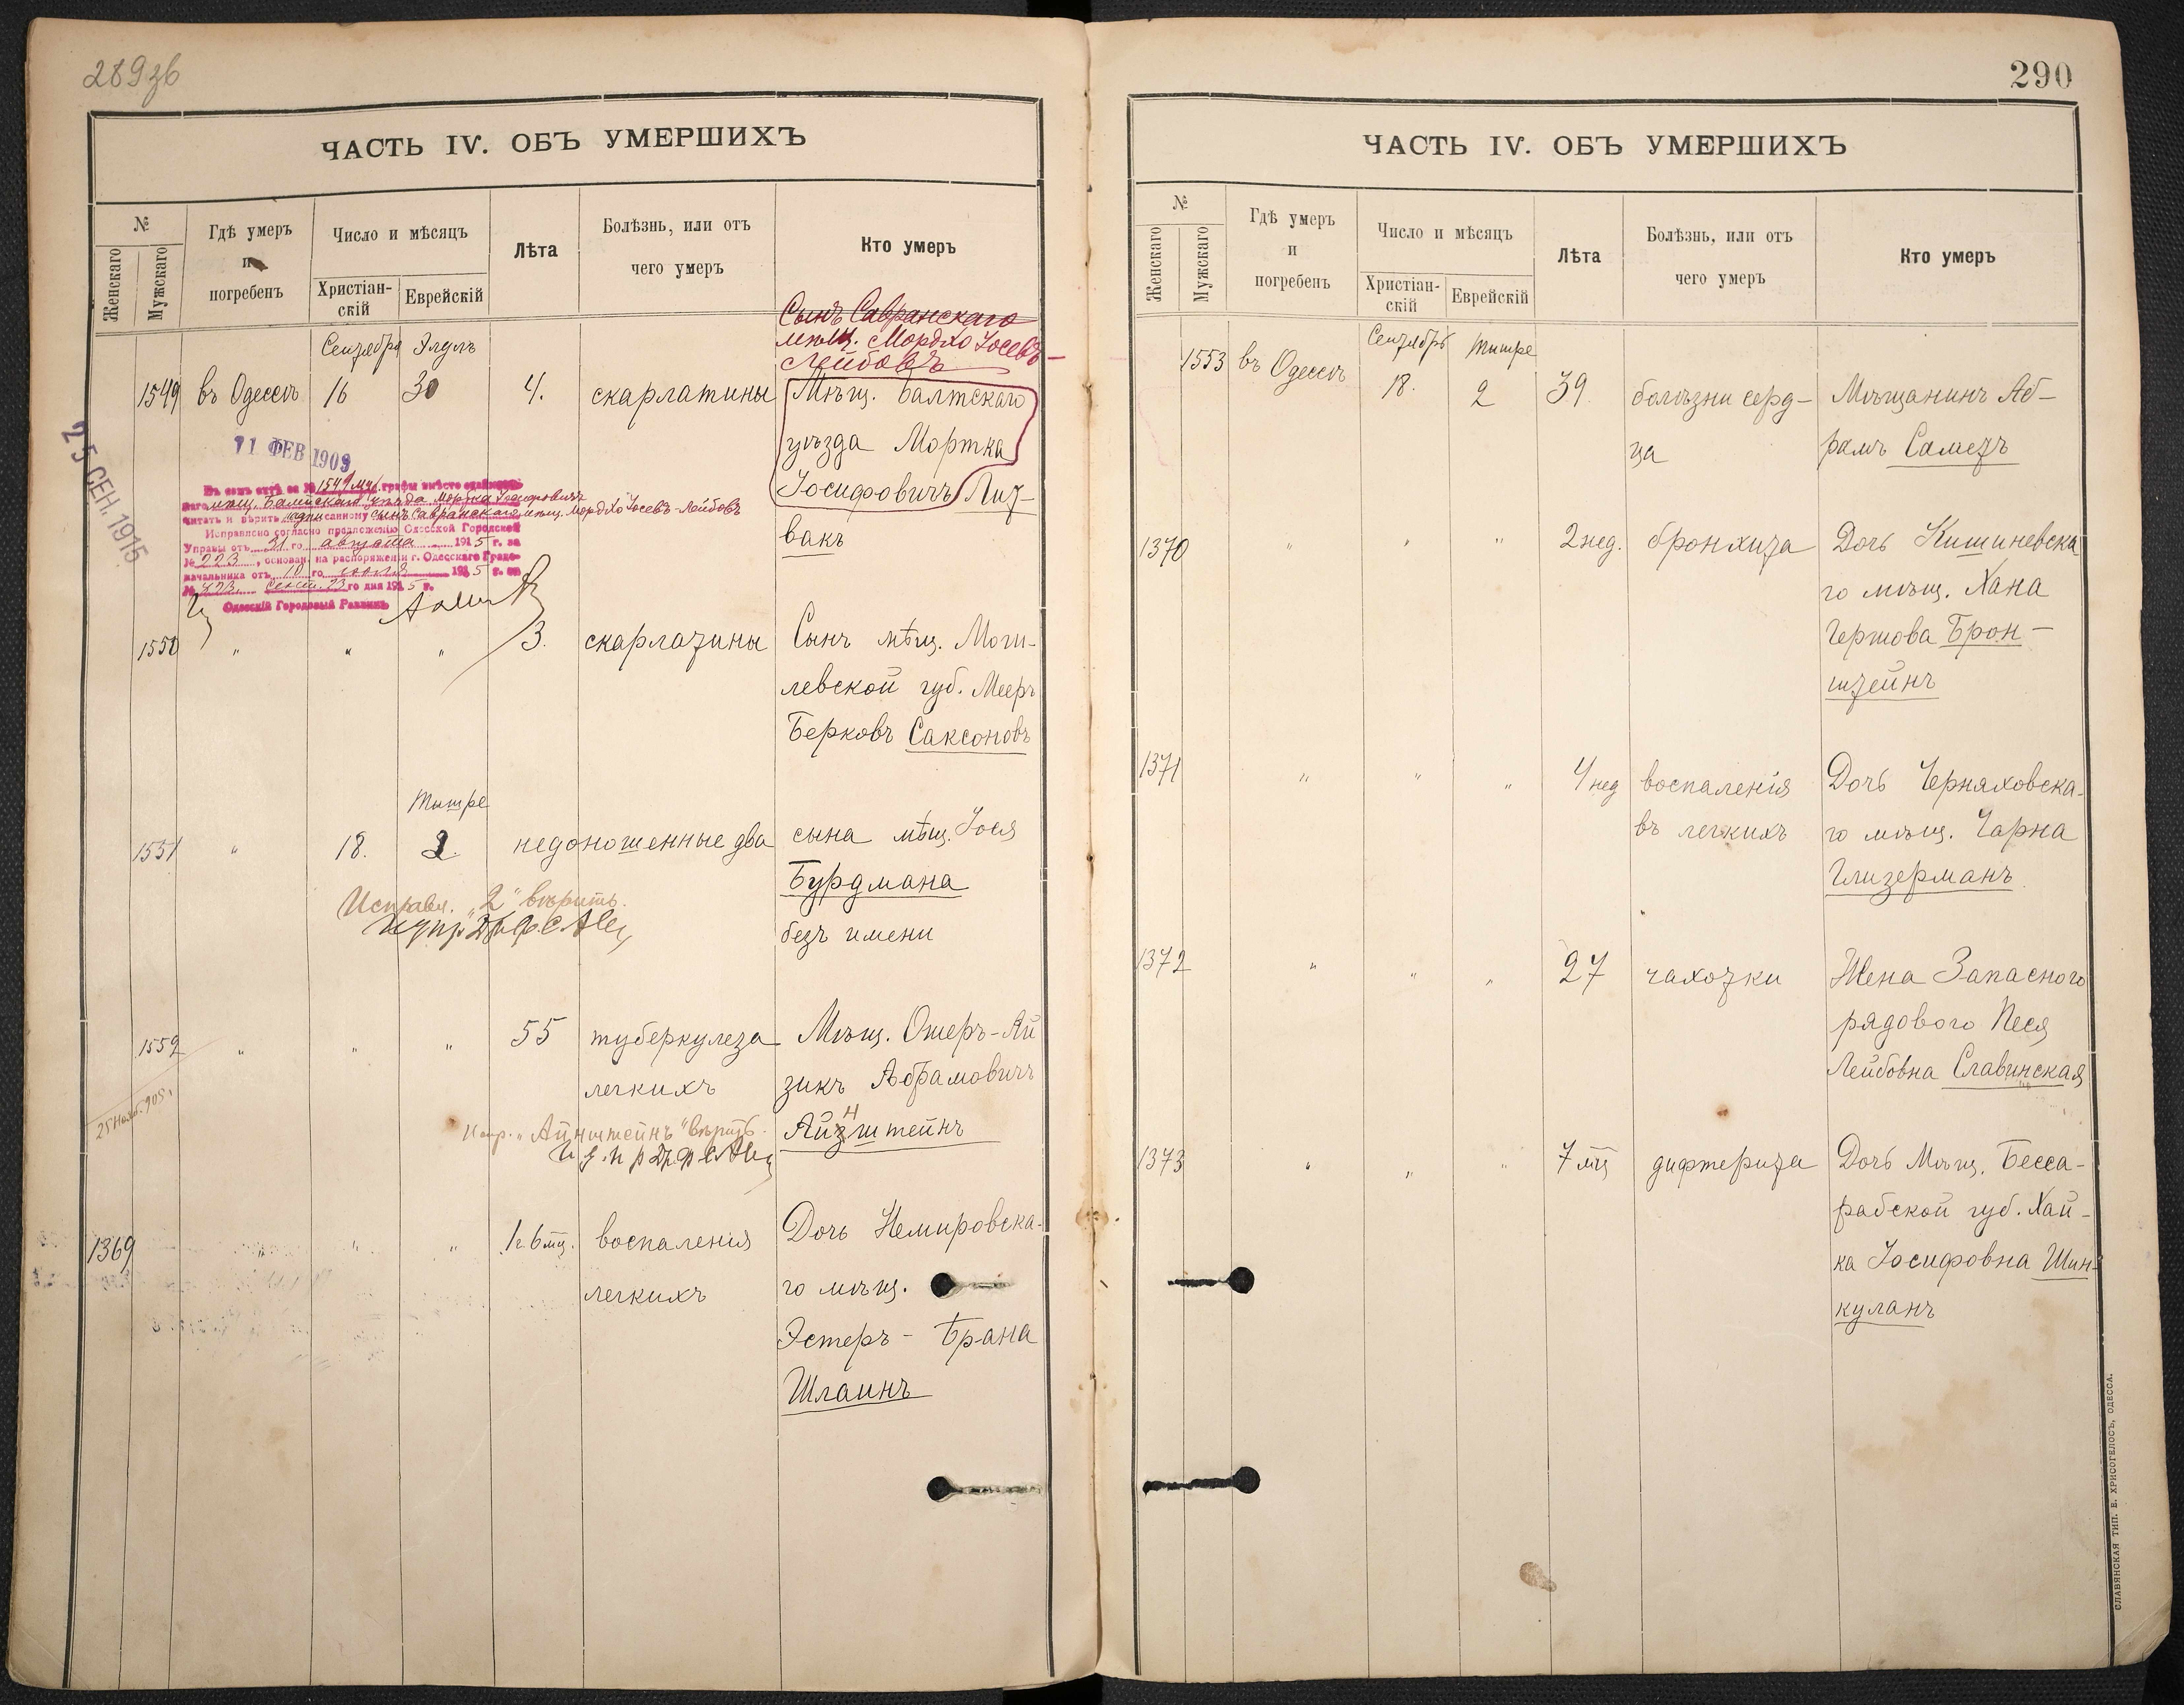 289зв
ЧАСТЬ IV. ОБЪ УМЕРШИХЪ
№
Женскаго
Мужскаго
Гдѣ умеръ
и
погребенъ
Число и мѣсяцъ
Христіан-
скій
Еврейскій
Лѣта
Болѣзнь, или отъ
чего умеръ
Кто умеръ
Сынъ Савранскаго
мѣщ. Мордхо Іосевъ-
Лейбовъ
Сентября Элулъ
1549 въ Одессѣ 16 30 4. скарлатины Мѣщ. Балтскаго
уѣзда Мортка
Іосифовичъ Лит-
вакъ
11 ФЕВ 1909
25 СЕН. 1915
Въ семъ актѣ за № 1549 муж. графы вмѣсто
мѣщ. Балтскаго уѣзда Мортка Іосифовичъ
читать и вѣрить надписанному сынъ Савранскаго мѣщ. Мордхо Іосевъ-Лейбовъ
Исправлено согласно предложенію Одесской Городской
Управы отъ 31 го августа 1915 г. за
№ 223, основан. на распоряженіи г. Одесскаго Градо-
начальника отъ 10 го іюля 1915 г. за
№ 423 Сент. 23 го дня 1915 г.
Одесскій Городовый Раввинъ
1550 " " " 3. скарлатины Сынъ мѣщ. Моги-
левской губ. Мееръ
Берковъ Саксоновъ
Тишре
1551 " 18. 2. недоношенные два сына мѣщ. Іося
Бурдмана
без имени
Исправл. „2" вѣрить.
1552 " " " 55 туберкулеза Мѣщ. Ошеръ-Ай
легкихъ зикъ Абрамовичъ
Айзнштейнъ
25 Нояб. 905 г.
Испр. „Айнштейнъ" вѣрить.
1369 " " " 1 г 6 мц. воспаленія Дочь Немировска-
легкихъ го мѣщ.
Эстеръ - Брана
Шлаинъ
290
ЧАСТЬ IV. ОБЪ УМЕРШИХЪ
№
Женскаго
Мужскаго
Гдѣ умеръ
и
погребенъ
Число и мѣсяцъ
Христіан-
скій
Еврейскій
Лѣта
Болѣзнь, или отъ
чего умеръ
Кто умеръ
Сентябрь Тишре
1553 въ Одессѣ 18. 2 39. болѣзни серд- Мѣщанинъ Аб-
ца рамъ Саметъ
1370 " " " 2 нед. бронхита Дочь Кишиневска
го мѣщ. Хана
Гершова Брон-
штейнъ
1371 " " " 4 нед воспаленія Дочь Черняховска-
въ легкихъ го мѣщ. Чарна
Глизерманъ
1372 " " " 27 чахотки Жена Запасного
рядового Песя
Лейбовна Славинская
1373 " " " 7 мц дифтерита Дочь Мѣщ. Бесса-
рабской губ. Хай-
ка Іосифовна Шин-
куланъ
СЛАВЯНСКАЯ ТИП. Е. ХРИСОГЕЛОСЪ, ОДЕССА.